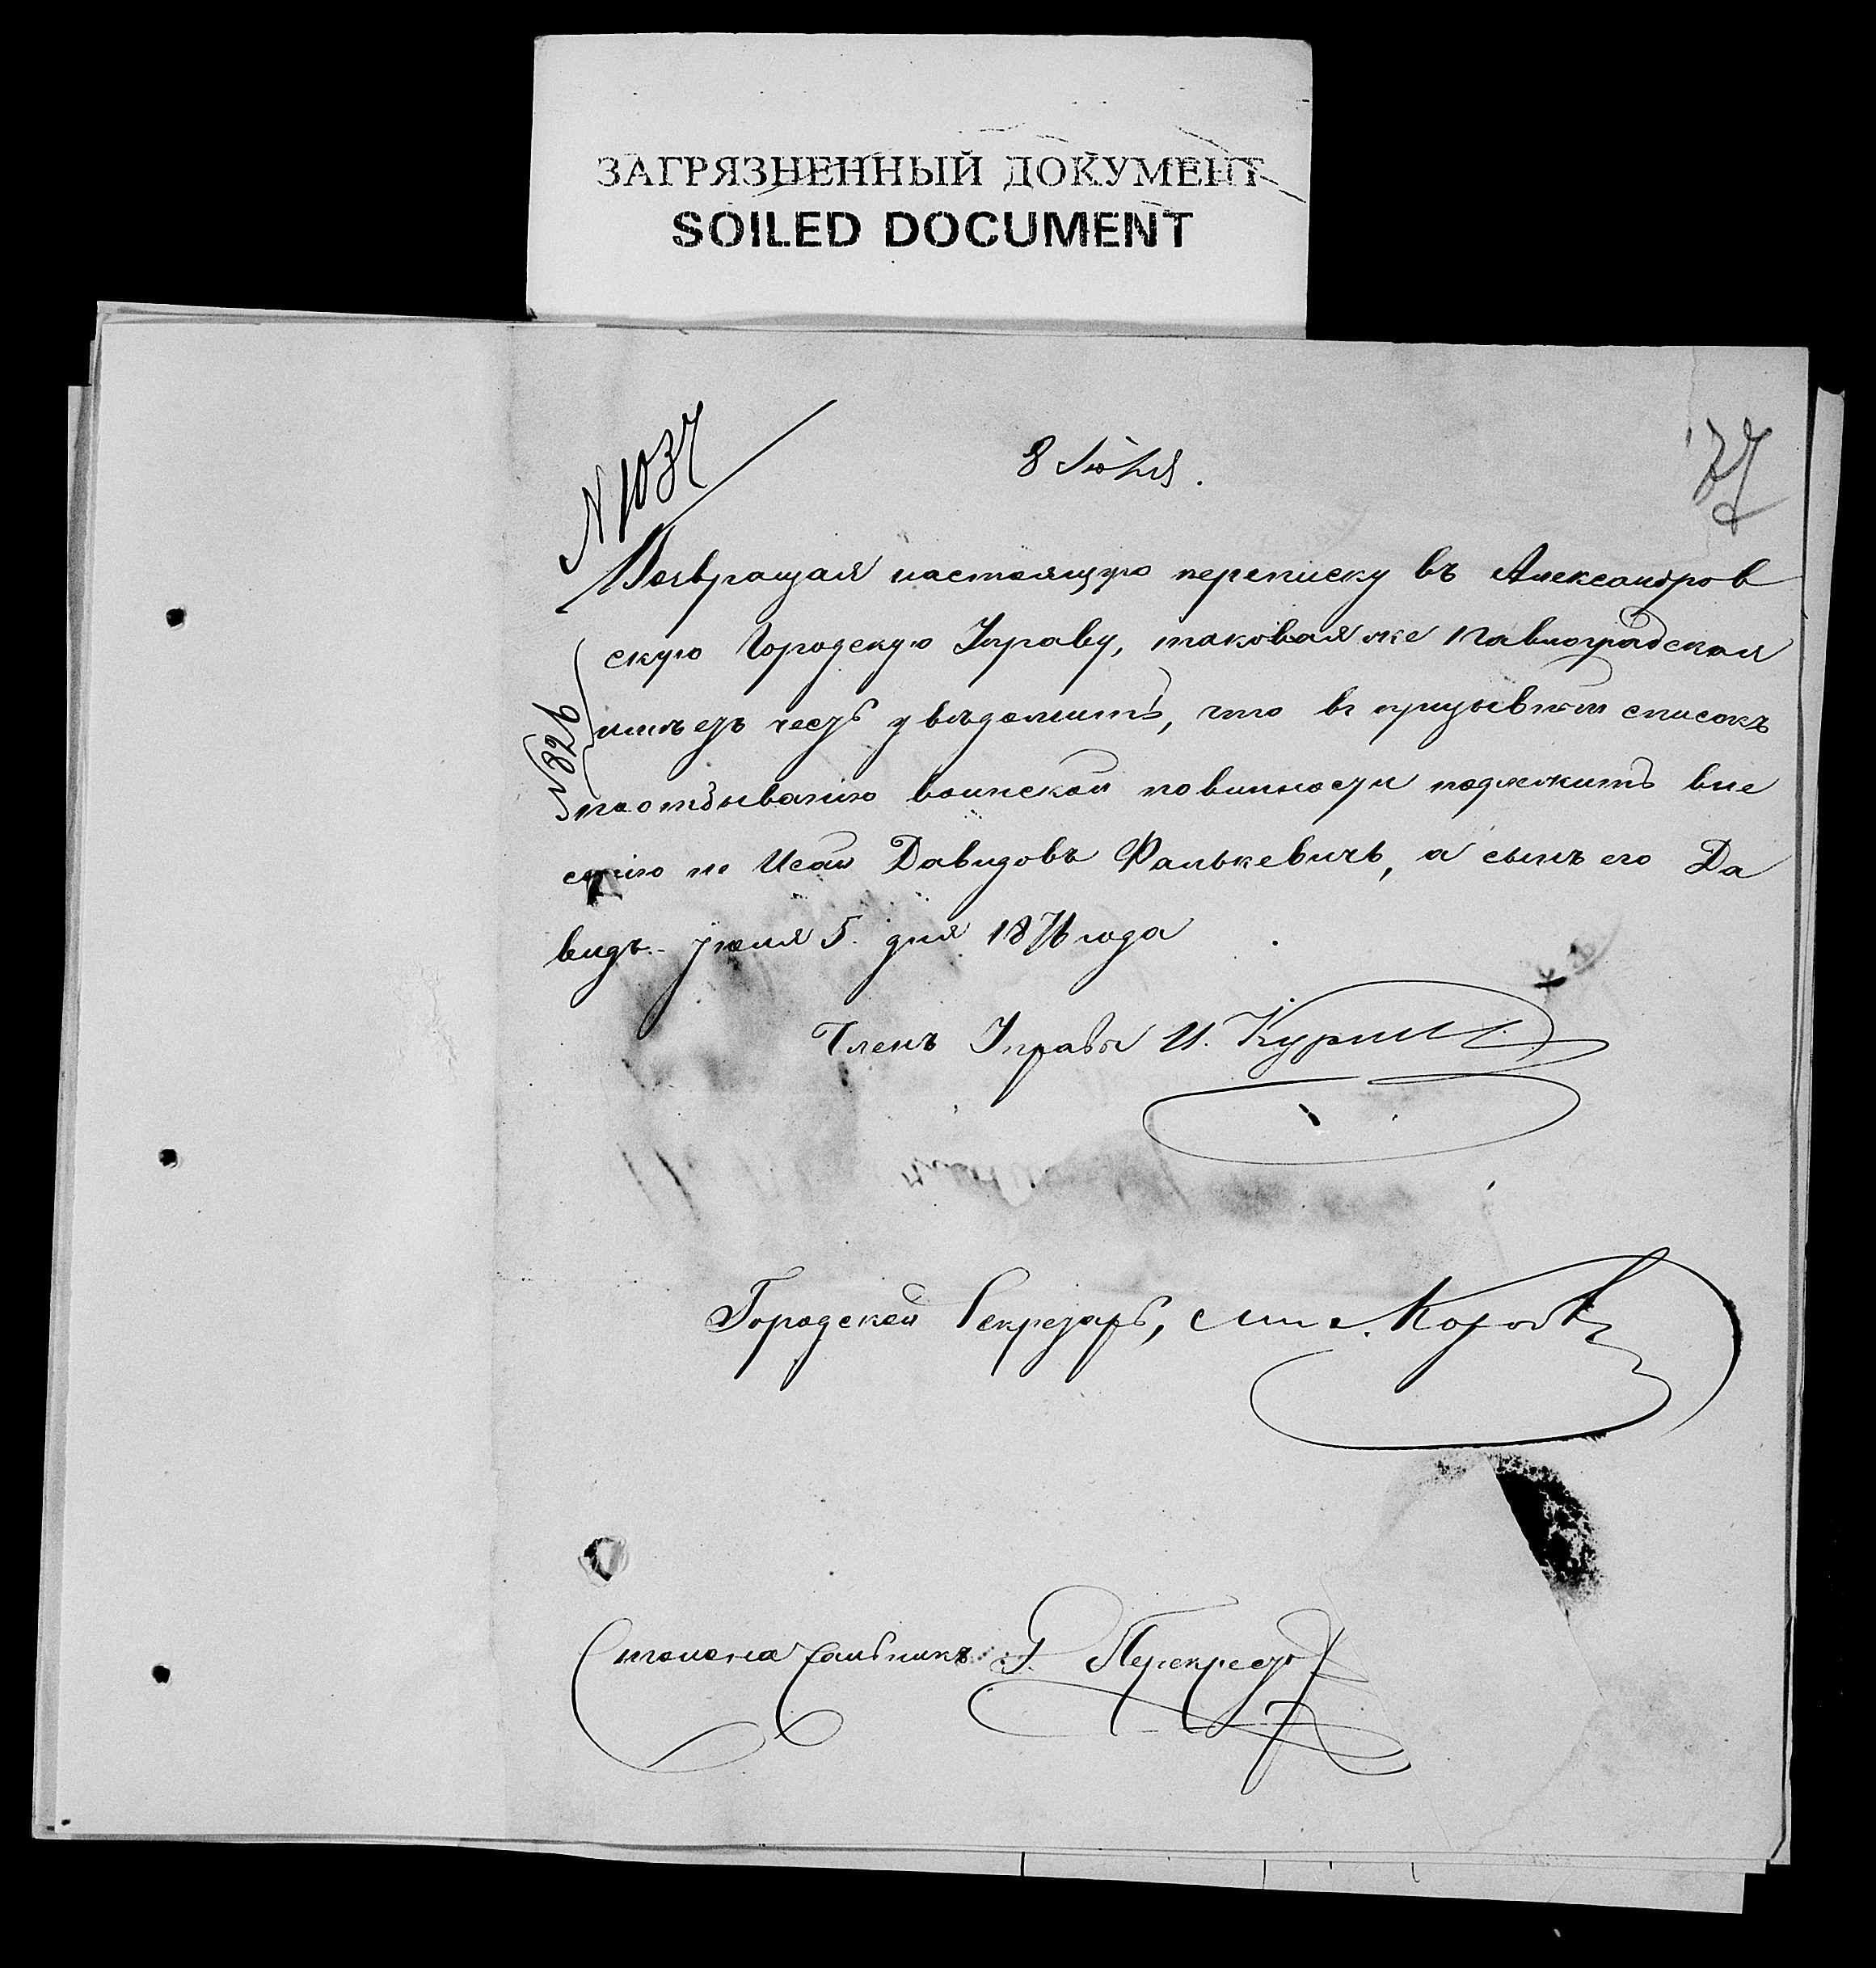 ЗАГРЯЗНЕННЫЙ ДОКУМЕНТ
SOILED DOCUMENT
N 1037
77
Возвращая настоящую переписку въ Александров
скую Городскую Управу, таковая же Павлоградская
имѣетъ честь увѣдомить, что въ призывной списокъ
N 826
по отбыванію воинской повинности подлежитъ вне
сенію не Исай Давидовъ Фалькевичъ, а сынъ его Да
видъ. Іюля 5 дня 1876 года
Членъ Управы И.
Городской Секретарь,
Столоначальникъ Перекрест